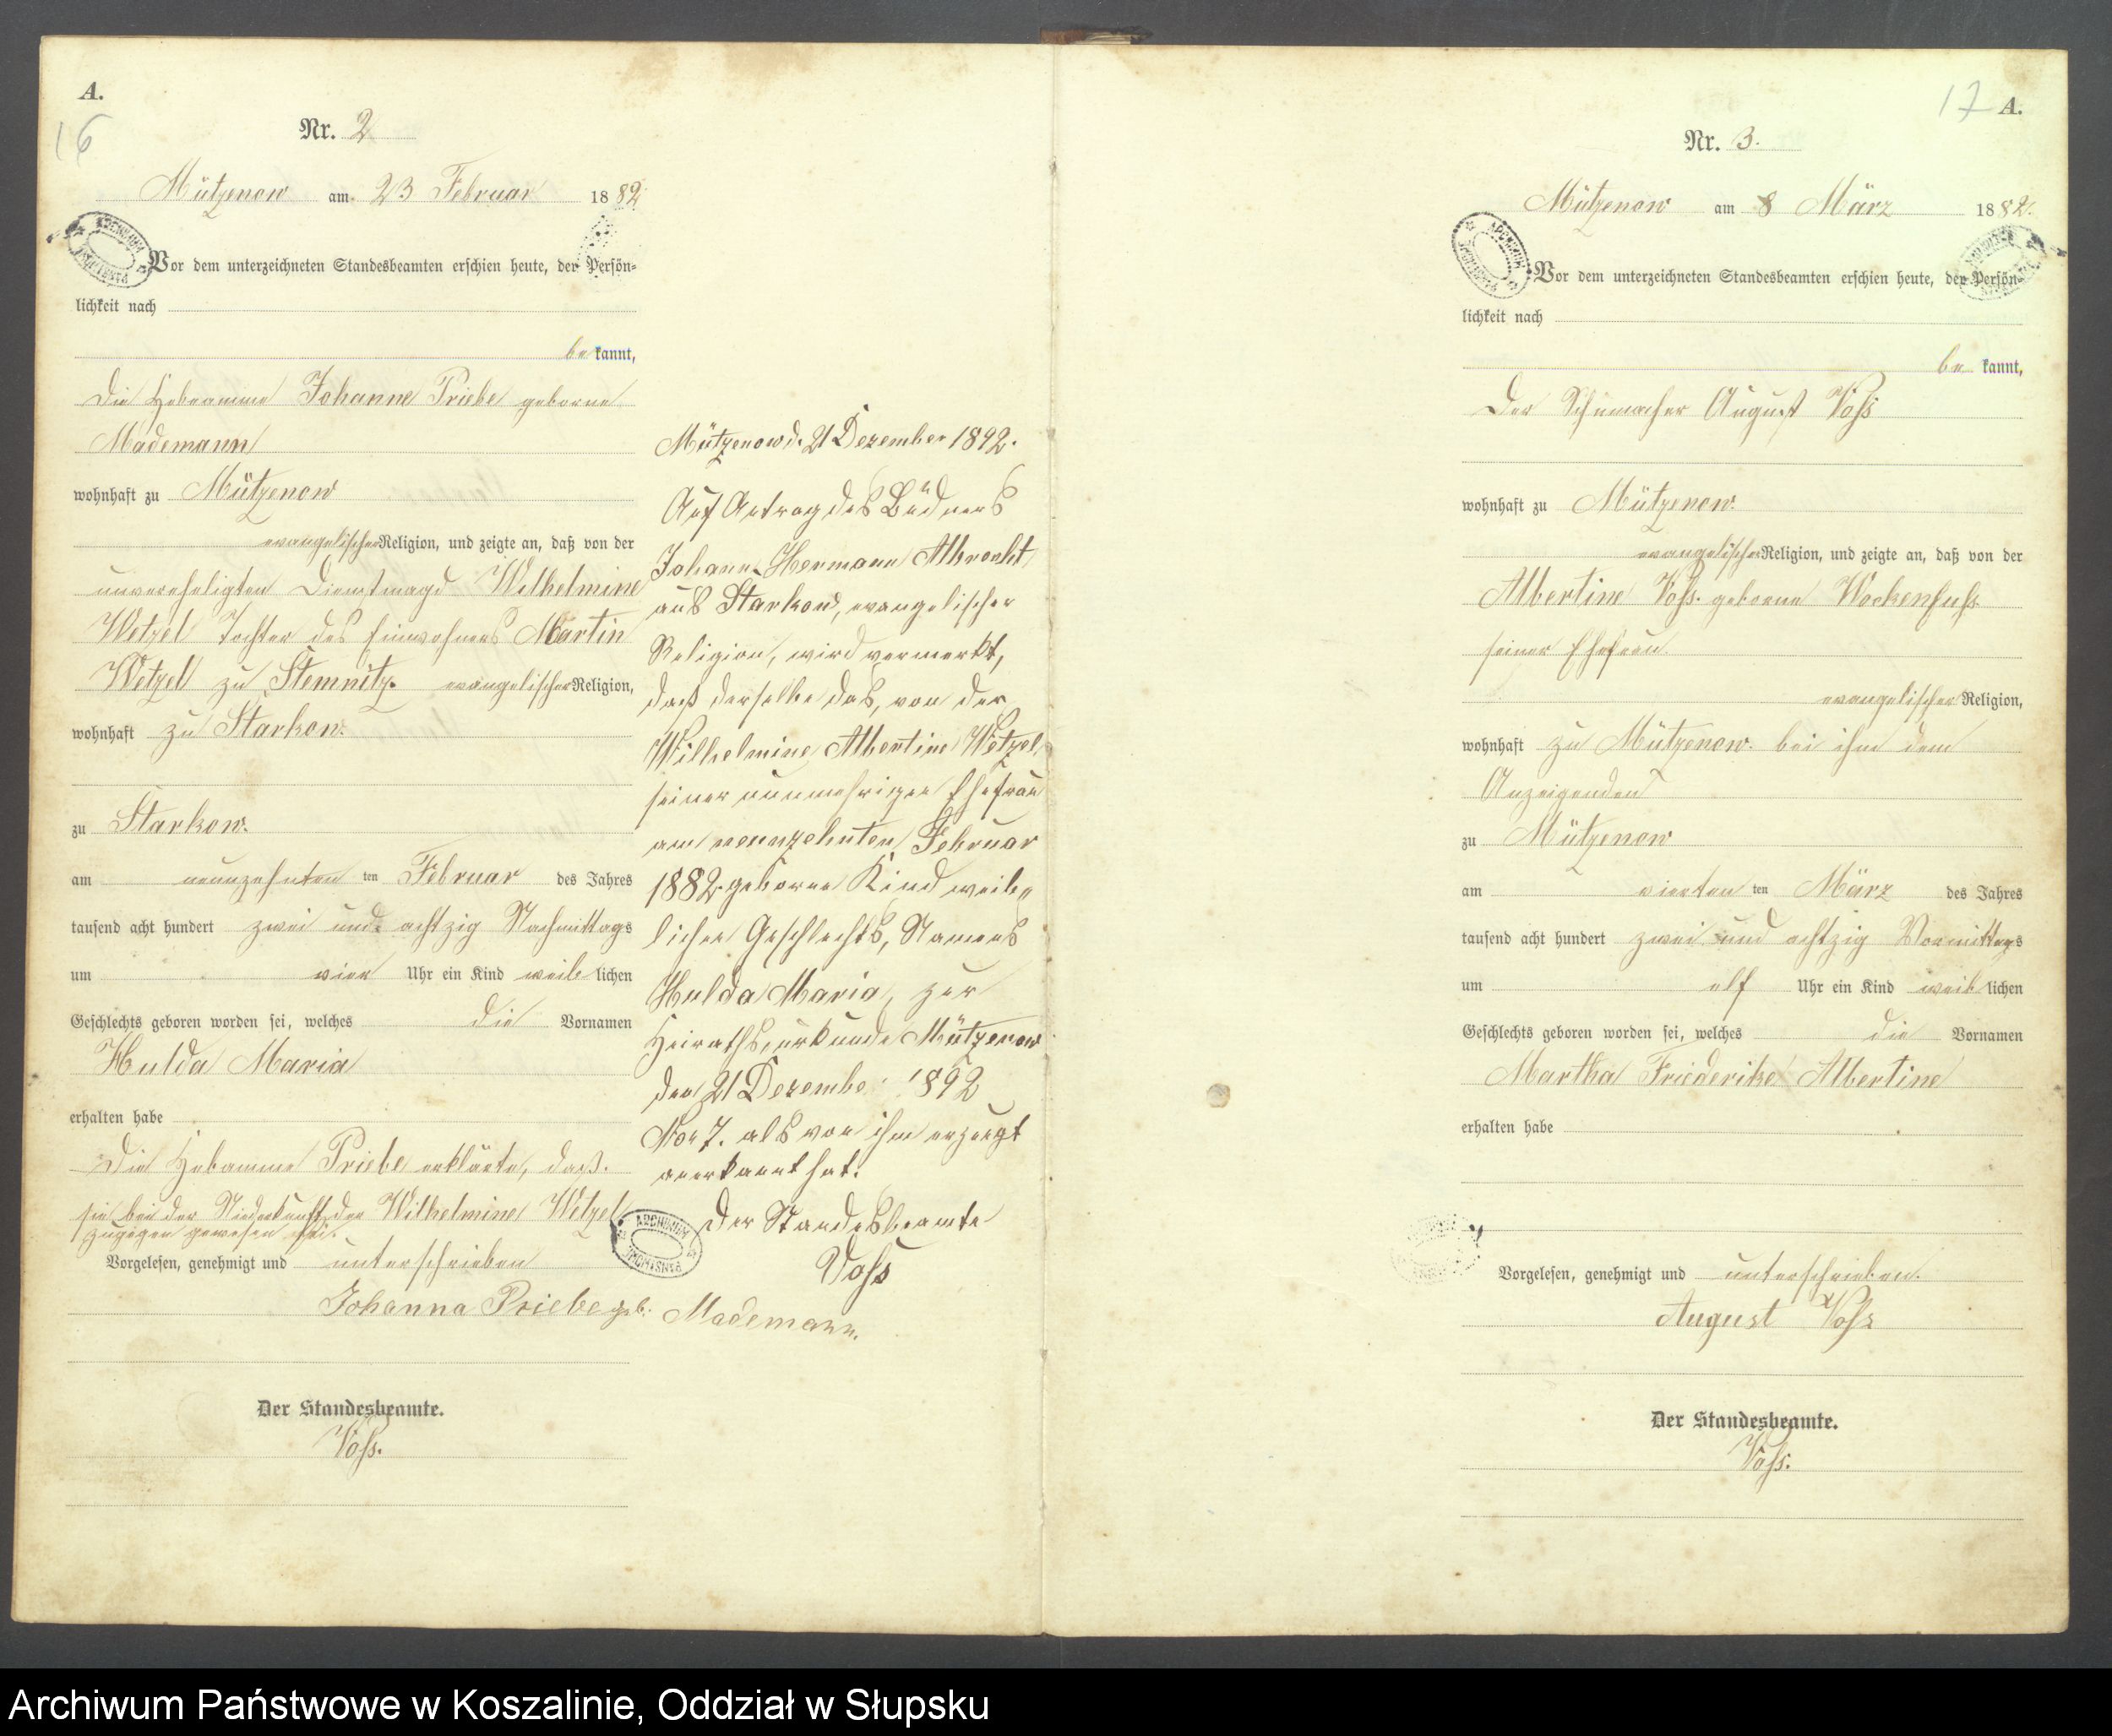 A.
16
Nr. 2
Mützenow am 23 Februar 1882
Vor dem unterzeichneten Standesbeamten erschien heute, der Persön-
lichkeit nach
bekannt,
die Hebeamme Johanne Priebe geborne
Mademann
wohnhaft zu Mützenow
evangelischer Religion, und zeigte an, daß von der
unvereheligten Dienstmagd Wilhelmine
Wetzel Tochter des Einwohners Martin
Wetzel zu Stemnitz. evangelischer Religion,
wohnhaft zu Starkow.
zu Starkow.
am neunzehnten ten Februar des Jahres
tausend acht hundert zwei und achtzig Nachmittags
um vier Uhr ein Kind weiblichen
Geschlechts geboren worden sei, welches die Vornamen
Hulda Maria
erhalten habe
Die Hebamme Priebe erklärte, daß
sie bei der Niederkunft der Wilhelmine Wetzel
zugegen gewesen sei.
Vorgelesen, genehmigt und unterschrieben
Johanna Priebe geb. Mademann.
Der Standesbeamte.
Voß.
Mützenow d. 21 Dezember 1892.
Auf Antrag des Büdners
Johann Hermann Albrecht
aus Starkow, evangelischer
Religion, wird vermerkt,
daß derselbe das, von der
Wilhelmine Albertine Wetzel
seiner nunmehrigen Ehefrau
am neunzehnten Februar
1882 geborne Kind weib„
lichen Geschlechts, Namens
Hulda Maria, zur
Heirathsurkunde Mützenow
den 21 Dezember 1892
No 7. als von ihm erzeugt
anerkannt hat.
Der Standesbeamte
Voss
17 A.
Nr. 3.
Mützenow am 8 März 1882.
Vor dem unterzeichneten Standesbeamten erschien heute, der Persön-
lichkeit nach
bekannt,
Der Schumacher August Voß
wohnhaft zu Mützenow.
evangelischer Religion, und zeigte an, daß von der
Albertine Voß geborne Wockenfuß
seiner Ehefrau
evangelischer Religion,
wohnhaft zu Mützenow. bei ihm dem
Anzeigenden
zu Mützenow
am vierten ten März des Jahres
tausend acht hundert zwei und achtzig Vormittags
um elf Uhr ein Kind weiblichen
Geschlechts geboren worden sei, welches die Vornamen
Martha Friederike Albertine
erhalten habe
Vorgelesen, genehmigt und unterschrieben.
August Voß
Der Standesbeamte.
Voß.
Archiwum Państwowe w Koszalinie, Oddział w Słupsku